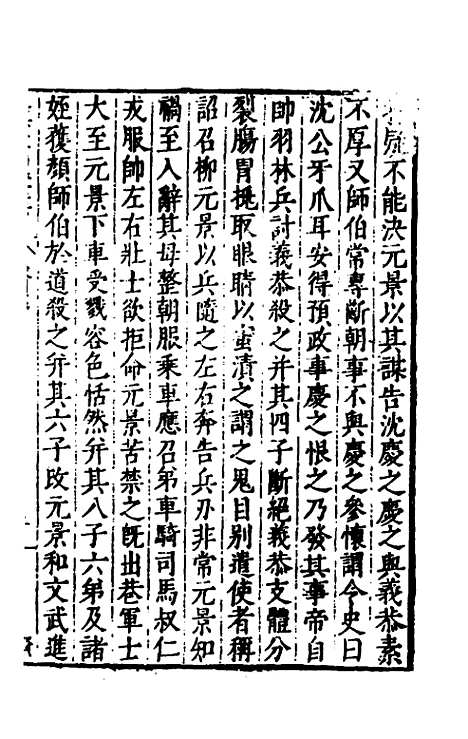 疑不能決元景以其謀告沈慶之慶之與義恭素
不厚又師伯常專斷朝事不與慶之參懷謂令史曰
沈公牙爪耳安得預政事慶之恨之乃發其事帝自
帥羽林兵討義恭殺之并其四子斷絕義恭支體分
裂腸胃挑取眼睛以蜜漬之謂之鬼目別遣使者稱
詔召柳元景以兵隨之左右奔告兵刃非常元景知
禍至入辭其母整朝服乘車應召弟車騎司馬叔仁
戎服帥左右壯士欲拒命元景苦禁之既出巷軍士
大至元景下車受戮容色恬然并其八子六弟及諸
姪獲顏師伯於道殺之并其六子改元景和文武進